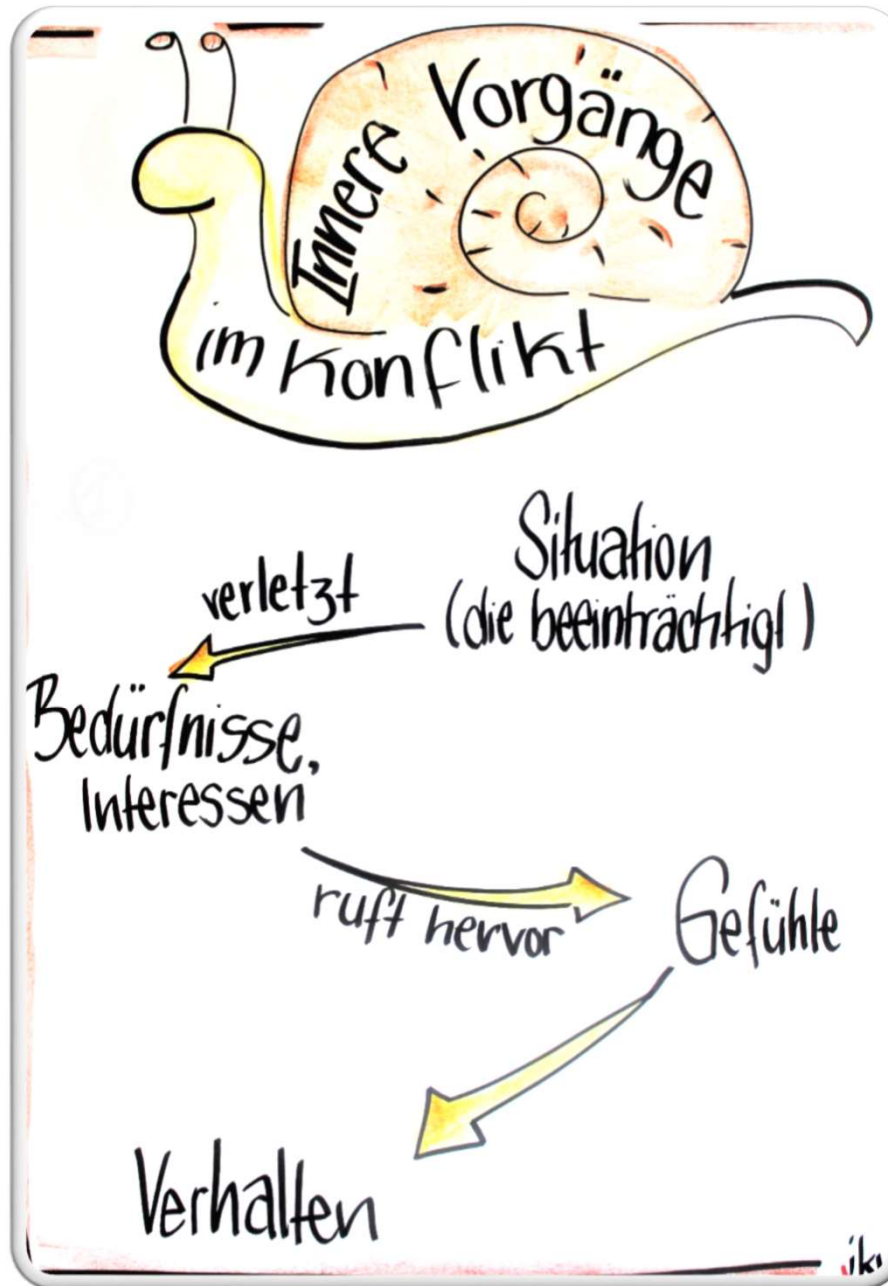 Innere Vorgänge
im Konflikt
Situation
(die beeinträchtigt)
verletzt
Bedürfnisse,
Interessen
ruft hervor
Gefühle
Verhalten